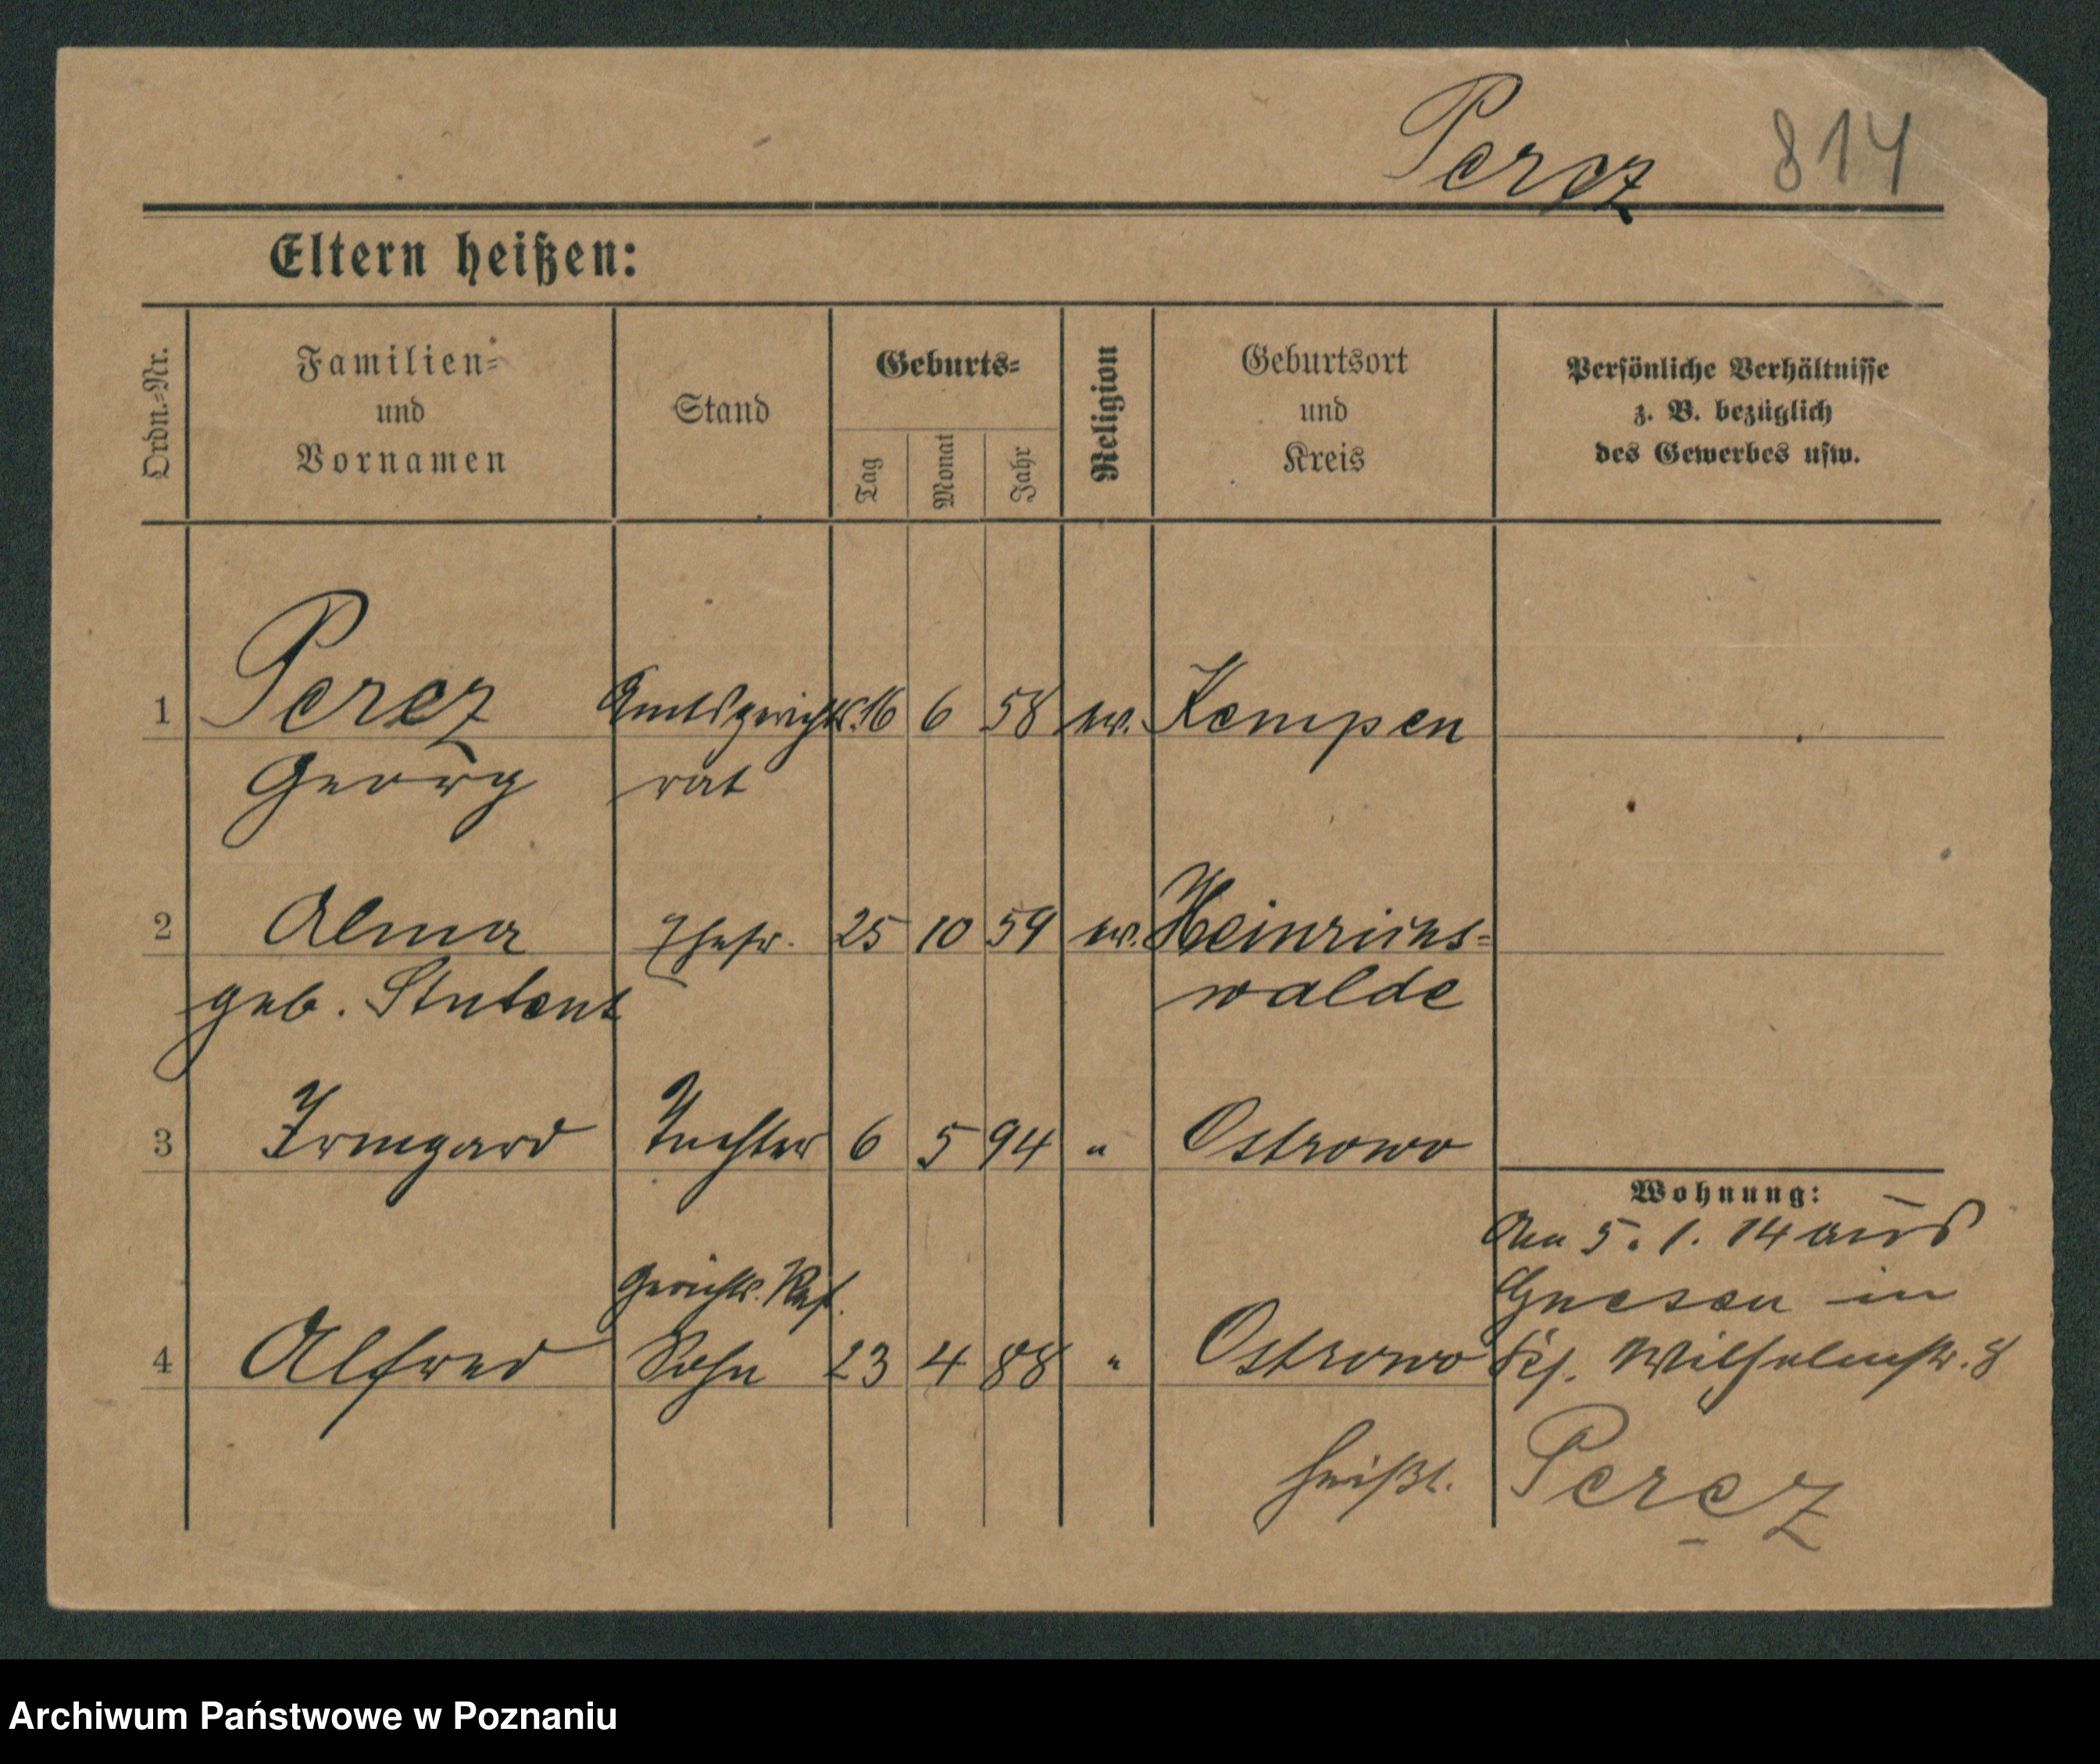 Perez 814
Eltern heißen:
Ordn.-Nr.
Familien-
und
Vornamen
Stand
Geburts-
Tag
Monat
Jahr
Religion
Geburtsort
und
Kreis
Persönliche Verhältnisse
z. B. bezüglich
des Gewerbes usw.
1 Perez Amtsgerichts 16 6 58 ev. Kempen
Georg rat
2 Alma Ehefr. 25 10 59 ev. Heinrichs-
geb. walde
3 Irmgard Tochter 6 5 94 " Ostrowo
Wohnung:
Am 5. 1. 14 aus
Gerichts. Ref. Gnesen in
4 Alfred Sohn 23 4 88 " Ostrowo Wilhelmstr. 8
heißt. Perez
Archiwum Państwowe w Poznaniu